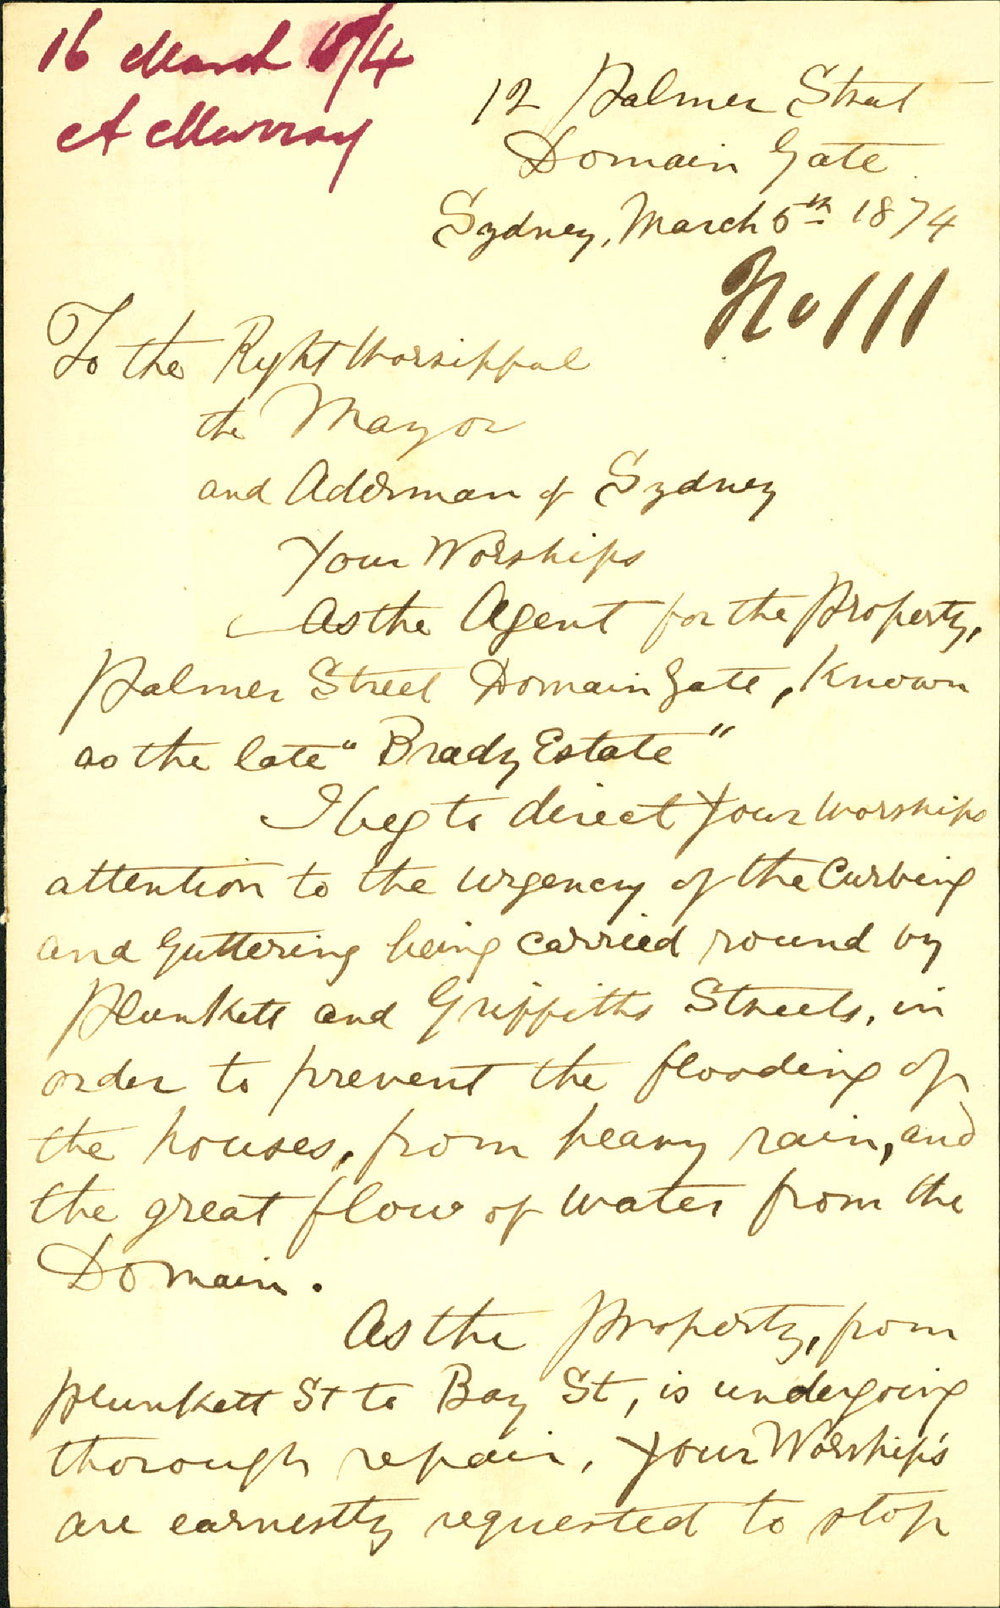 16 March 1874
A Murray
12 Palmer Street
Domain Gate
Sydney, March 5th 1874
No 111
To the Right Worsippal
the Mayor
and Adderman of Sydney
Your Worships
As the Agent for the Property,
Palmer Street Domain Gate, Known
as the late "Brady Estate"
I beg to direct Your Worships
attention to the urgency of the Curbing
and Guttering being carried round by
Plunkett and Griffiths Streets, in
order to prevent the flooding of
the houses, from heavy rain, and
the great flow of water from the
Domain.
As the Property, from
Plunkett St to Bay St, is undergoing
thorough repair, Your Worships
are earnestly requested to stop